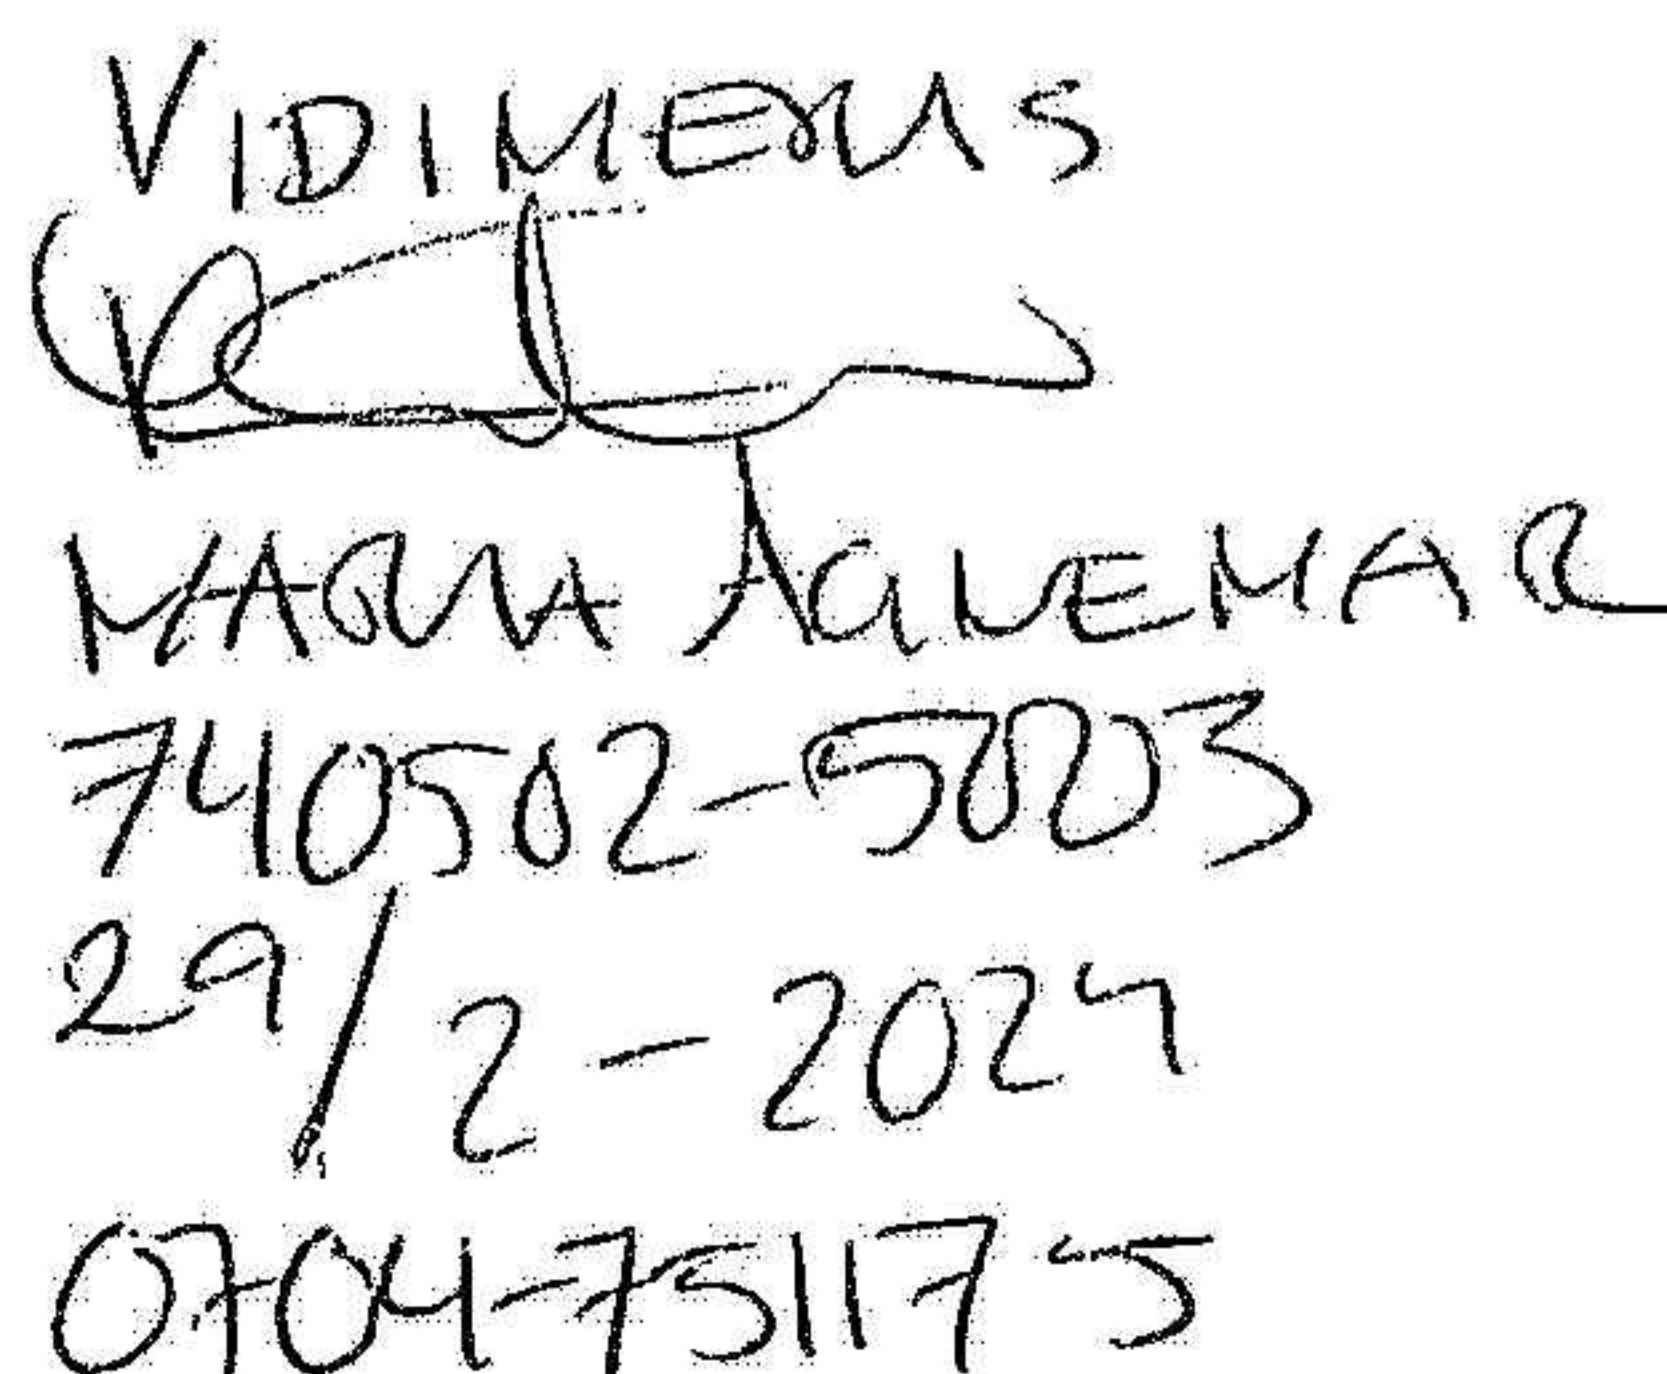 VIDIMERAS
MARIA AGNEMAR
740502-5003
29/2-2024
0704-751175